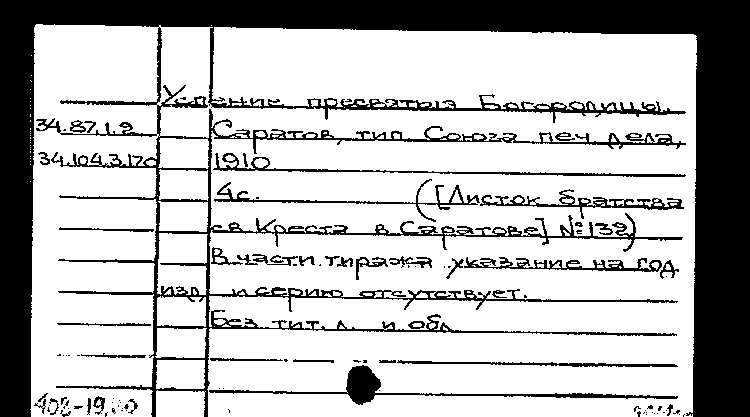 Успение пресвятыя Богородицы.
34.87.1.2 Саратов, тип. Союза печ. дела,
34.104.3.170 1910
4с. ([Листок братства
св. Креста в Саратове] №132)
В части тиража указание на год
изд. и серию отсутствует.
Без тит. л. и обл.